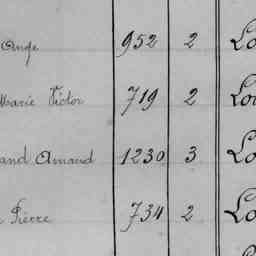 Ange 952 2 Lo
Marie Victor 719 2 Lo
and Amand 1230 3 Lo
Pierre 734 2 Lo